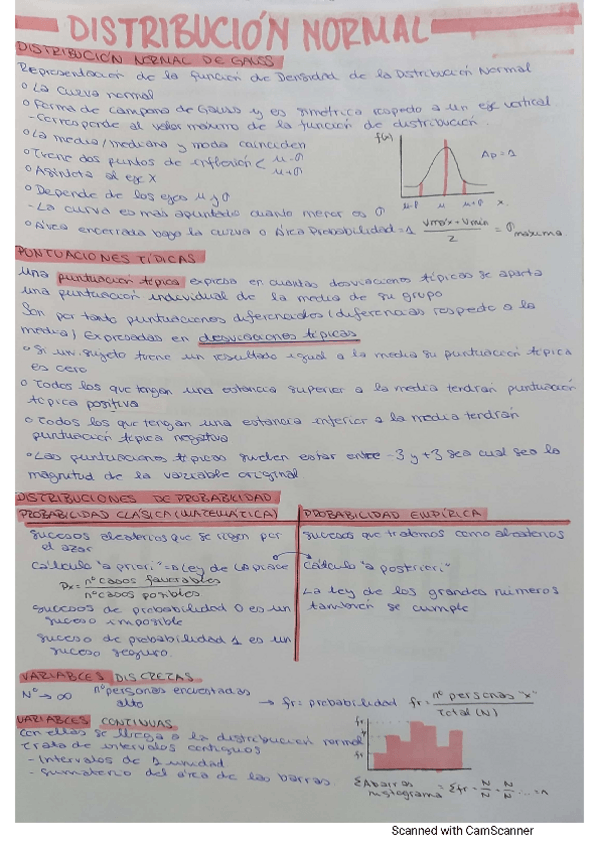 DISTRIBUCIÓN NORMAL
DISTRIBUCIÓN NORMAL DE GAUSS
Representación de la función de Densidad de la Distribución Normal
o La curva normal
o Forma de campana de Gauss y es simétrica respecto a un eje vertical
- Corresponde al valor máximo de la función de distribución.
o La media/mediana y moda coinciden
o Tiene dos puntos de inflexión < μ-σ
μ+σ
o Asíntota al eje X
o Depende de los ejes μ y σ
- La curva es más apuntada cuanto menor es σ
o Área encerrada bajo la curva o Área Probabilidad = 1
f(x)
Ap = 1
μ-σ μ μ+σ x
Vmáx + Vmín / 2 = σ máxima
PUNTUACIONES TÍDICAS
Una puntuación típica expresa en cuantas desviaciones típicas se aparta
una puntuación individual de la media de su grupo
Son por tanto puntuaciones diferenciales (diferencias respecto a la
media) Expresadas en desviaciones típicas
o Si un sujeto tiene un resultado igual a la media su puntuación típica
es cero
o Todos los que tengan una estancia superior a la media tendrán puntuación
típica positiva
o Todos los que tengan una estancia inferior a la media tendrán
puntuación típica negativa
o Las puntuaciones típicas suelen estar entre -3 y +3 sea cual sea la
magnitud de la variable original
DISTRIBUCIONES DE PROBABILIDAD
PROBABILIDAD CLÁSICA (MATEMÁTICA)
Sucesos aleatorios que se rigen por
el azar
Cálculo "a priori" => Ley de Laplace
Px = nº casos favorables / nº casos posibles
Sucesos de probabilidad 0 es un
suceso imposible
Suceso de probabilidad 1 es un
suceso seguro.
PROBABILIDAD EMPÍRICA
Sucesos que tratamos como aleatorios
Cálculo "a posteriori"
La ley de los grandes números
también se cumple
VARIABLES DISCRETAS
Nº → ∞ nº personas encuestadas
alto
→ fr = probabilidad fr = nº personas "x" / Total (N)
VARIABLES CONTINUAS
Con ellas se llega a la distribución normal
Trata de intervalos contiguos
- Intervalos de 1 unidad
- Sumatorio del área de las barras
fr
fr
ΣAbarras histograma = Σfr = N/N = N/N ...
Scanned with CamScanner